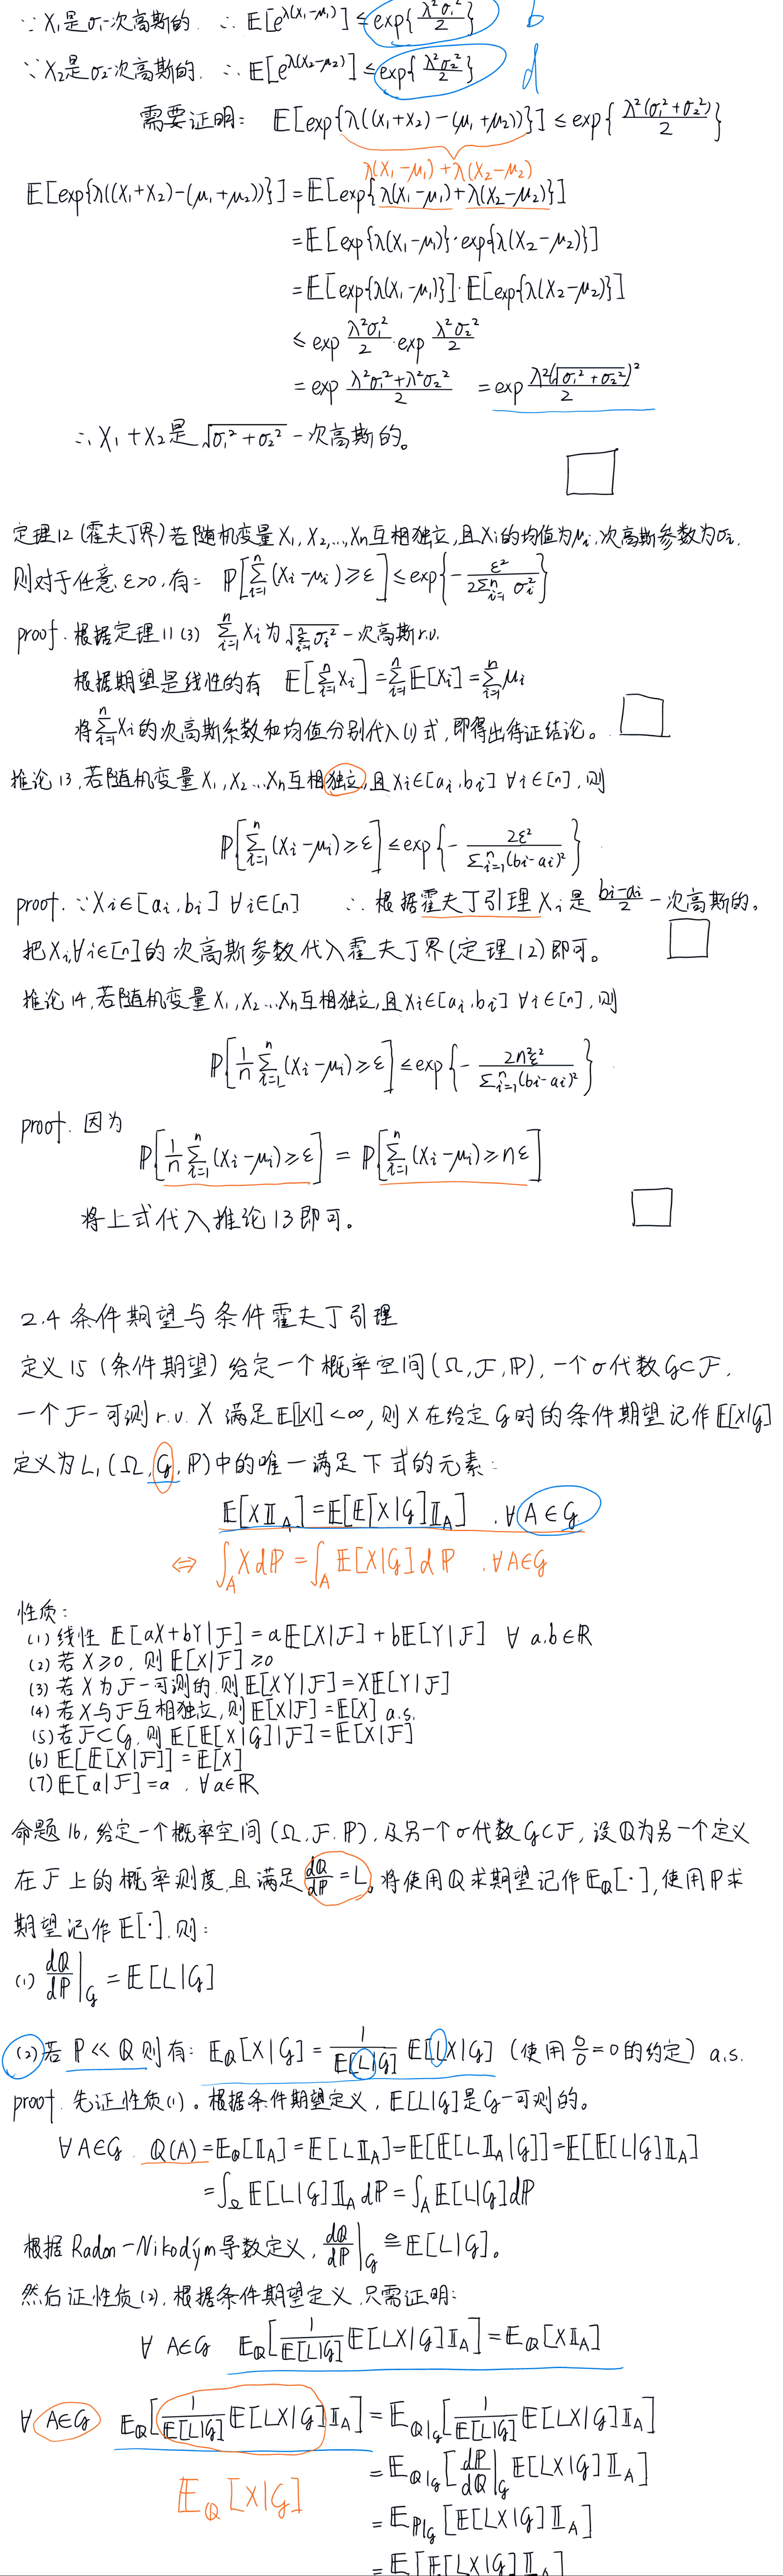 ∵ X₁是σ₁-次高斯的. ∴ 𝔼[e^{λ(X₁-μ₁)}] ≤ exp{λ²σ₁²/2} b
∵ X₂是σ₂-次高斯的. ∴ 𝔼[e^{λ(X₂-μ₂)}] ≤ exp{λ²σ₂²/2} d
需要证明: 𝔼[exp{λ((X₁+X₂)-(μ₁+μ₂))}] ≤ exp{λ²(σ₁²+σ₂²)/2}
λ(X₁-μ₁)+λ(X₂-μ₂)
𝔼[exp{λ((X₁+X₂)-(μ₁+μ₂))}] = 𝔼[exp{λ(X₁-μ₁)+λ(X₂-μ₂)}]
= 𝔼[exp{λ(X₁-μ₁)}·exp{λ(X₂-μ₂)}]
= 𝔼[exp{λ(X₁-μ₁)}]·𝔼[exp{λ(X₂-μ₂)}]
≤ exp λ²σ₁²/2 · exp λ²σ₂²/2
= exp (λ²σ₁²+λ²σ₂²)/2 = exp λ²(√(σ₁²+σ₂²))²/2
∴ X₁+X₂是 √(σ₁²+σ₂²) -次高斯的。
定理12 (霍夫丁界) 若随机变量X₁,X₂,...,Xn互相独立,且Xi的均值为μi,次高斯参数为σi,
则对于任意 ε>0,有: ℙ[∑_{i=1}^n (Xi-μi) ≥ ε] ≤ exp{-ε²/(2∑_{i=1}^n σi²)}
proof. 根据定理11(3) ∑_{i=1}^n Xi为√(∑_{i=1}^n σi²)-次高斯r.v.
根据期望是线性的有 𝔼[∑_{i=1}^n Xi] = ∑_{i=1}^n 𝔼[Xi] = ∑_{i=1}^n μi
将∑_{i=1}^n Xi的次高斯系数和均值分别代入(1)式,即得出待证结论。
推论13,若随机变量X₁,X₂...Xn互相独立,且Xi∈[ai,bi] ∀i∈[n],则
ℙ[∑_{i=1}^n (Xi-μi) ≥ ε] ≤ exp{-2ε²/∑_{i=1}^n (bi-ai)²}
proof. ∵Xi∈[ai,bi] ∀i∈[n] ∴ 根据霍夫丁引理 Xi是 (bi-ai)/2 -次高斯的。
把Xi,∀i∈[n]的次高斯参数代入霍夫丁界(定理12)即可。
推论14,若随机变量X₁,X₂...Xn互相独立,且Xi∈[ai,bi] ∀i∈[n],则
ℙ[1/n ∑_{i=1}^n (Xi-μi) ≥ ε] ≤ exp{-2n²ε²/∑_{i=1}^n (bi-ai)²}
proof. 因为
ℙ[1/n ∑_{i=1}^n (Xi-μi) ≥ ε] = ℙ[∑_{i=1}^n (Xi-μi) ≥ nε]
将上式代入推论13即可。
2.4 条件期望与条件霍夫丁引理
定义15 (条件期望) 给定一个概率空间(Ω,F,ℙ),一个σ代数G⊂F,
一个F-可测r.v. X 满足𝔼[|X|]<∞,则X在给定G时的条件期望记作𝔼[X|G]
定义为L₁(Ω,G,ℙ)中的唯一满足下式的元素:
𝔼[X𝕀_A] = 𝔼[𝔼[X|G]𝕀_A] . ∀A∈G
⇔ ∫_A X dℙ = ∫_A 𝔼[X|G]dℙ . ∀A∈G
性质:
(1) 线性 𝔼[aX+bY|F] = a𝔼[X|F]+b𝔼[Y|F] ∀ a.b∈ℝ
(2) 若 X≥0, 则 𝔼[X|F] ≥0
(3) 若 X为F-可测的,则𝔼[XY|F]=X𝔼[Y|F]
(4) 若X与F互相独立,则𝔼[X|F]=𝔼[X] a.s.
(5) 若F⊂G,则 𝔼[𝔼[X|G]|F]=𝔼[X|F]
(6) 𝔼[𝔼[X|F]] = 𝔼[X]
(7) 𝔼[a|F]=a . ∀a∈ℝ
命题16,给定一个概率空间(Ω,F,ℙ),及另一个σ代数G⊂F,设ℚ为另一个定义
在F上的概率测度,且满足 dℚ/dℙ=L。将使用ℚ求期望记作𝔼_ℚ[·],使用ℙ求
期望记作𝔼[·],则:
(1) dℚ/dℙ|_G = 𝔼[L|G]
(2) 若 ℙ≪ℚ 则有: 𝔼_ℚ[X|G] = 1/𝔼[L|G] 𝔼[LX|G] (使用 0/0=0的约定) a.s.
proof. 先证性质(1)。根据条件期望定义,𝔼[L|G]是G-可测的。
∀A∈G. ℚ(A)=𝔼_ℚ[𝕀_A]=𝔼[L𝕀_A]=𝔼[𝔼[L𝕀_A|G]]=𝔼[𝔼[L|G]𝕀_A]
=∫_Ω 𝔼[L|G]𝕀_A dℙ=∫_A 𝔼[L|G]dℙ
根据Radon-Nikodym导数定义, dℚ/dℙ|_G ≙ 𝔼[L|G]。
然后证性质(2),根据条件期望定义,只需证明:
∀ A∈G 𝔼_ℚ[1/𝔼[L|G] 𝔼[LX|G]𝕀_A]=𝔼_ℚ[X𝕀_A]
∀ A∈G 𝔼_ℚ[1/𝔼[L|G] 𝔼[LX|G]𝕀_A] = 𝔼_{ℚ|G}[1/𝔼[L|G] 𝔼[LX|G]𝕀_A]
𝔼_ℚ[X|G]
= 𝔼_{ℚ|G}[dℙ/dℚ|_G 𝔼[LX|G]𝕀_A]
= 𝔼_{ℙ|G}[𝔼[LX|G]𝕀_A]
= 𝔼[𝔼[LX|G]𝕀_A]